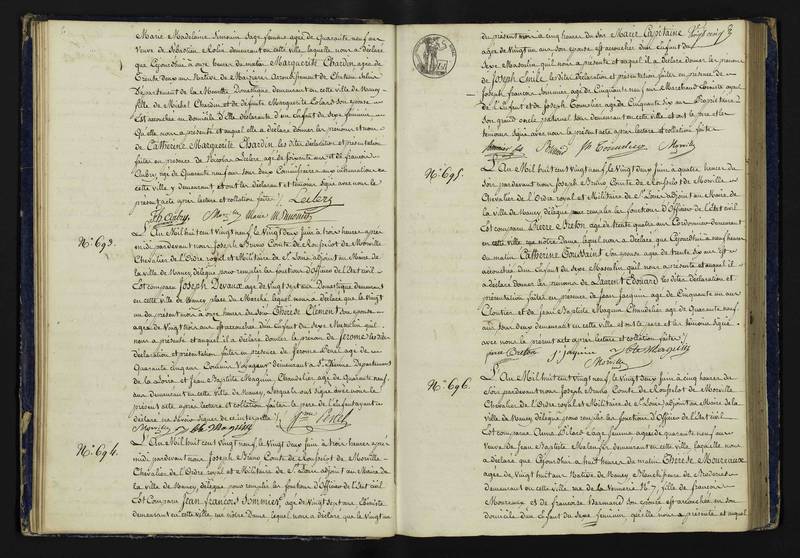 Marie Madeleine Simonin Sage femme agée de Quarante neuf ans
Veuve de Sébastien Colin demeurant en cette ville laquelle nous a déclaré
que Cejourdhui à onze heures du matin Marguerite Chardon agée de
Trente deux ans Native de Arrondissement de Chateau Salins
Département de la Meurthe Domestique demeurant en cette ville de Nancy
fille de Michel Chardin et de défunte Marguerite son épouse
Est accouchée au domicile d'elle déclarante d'un Enfant du Sexe féminin
Qu'elle nous a présenté et auquel elle a déclaré donner les prénoms et nom
de Catherine Marguerite Chardin les dites déclaration et présentation
faites en présence de Nicolas Leclerc agé de soixante ans et de françois
Aubry agé de Quarante neuf ans tous deux
cette ville y demeurant et ont les déclarant et témoins signé avec nous le
présent acte après lecture et collation faite ./.
Leclerc
fs Aubry Morville Marie M. Simonin
N.° 693.
L'An Mil huit cent Vingt neuf le Vingt deux Juin à trois heures après
midi pardevant nous Joseph Bruno Comte de Rousselot de Morville
Chevalier de l'Ordre royal et Militaire de St Louis adjoint au Maire de
la ville de Nancy délégué pour remplir les fonctions d'Officier de l'Etat civil
Est comparu Joseph Devaux agé de Vingt six ans Domestique demeurant
en cette ville de Nancy place du Marché, lequel nous a déclaré que le Vingt
un du présent mois à onze heures du soir Thérèse Clément son épouse
agée de Vingt trois ans est accouchée d'un Enfant du Sexe Masculin qu'il
nous a présenté et auquel il a déclaré donner le prénom de Jérome les dites
déclaration et présentation faites en présence de Jerome agé de
Quarante cinq ans Commis Voyageur demeurant à St Etienne Département
de la Loire et Jean Baptiste Maguin Chandelier agé de Quarante neuf
ans demeurant en cette ville de Nancy, lesquels ont signé avec nous le
présent acte, après lecture et collation faite, le père de l'enfant ayant
déclaré ne savoir signer de ce interpellé ./.
Morville J Bte Maguin
N.° 694.
L'An Mil huit cent Vingt neuf le Vingt deux Juin à trois heures après
midi pardevant nous Joseph Bruno Comte de Rousselot de Morville
Chevalier de l'Ordre royal et Militaire de St Louis adjoint au Maire de
la ville de Nancy, délégué pour remplir les fonctions d'Officier de l'Etat civil
Est comparu Jean François Sommier agé de Vingt sept ans Ebéniste
demeurant en cette ville, rue Notre Dame, lequel nous a déclaré que le Vingt un
du présent mois à cinq heures du soir Marie Capitaine
agée de Vingt un ans son épouse est accouchée d'un Enfant du
Sexe Masculin, qu'il nous a présenté et auquel il a déclaré donner les prénoms
de Joseph Emile les dites déclaration et présentation faites en présence de
Joseph françois Sommier agé de Cinquante neuf ans Marchand Ebéniste ayeul
de l'Enfant et de Joseph Tonnelier agé de Cinquante six ans Propriétaire
son grand oncle paternel tous demeurant en cette ville et ont le père et les
témoins signé avec nous le présent acte après lecture et collation faite ./.
Sommier Morville
N.° 695.
L'An Mil huit cent Vingt neuf, le Vingt deux Juin à quatre heures du
soir pardevant nous Joseph Bruno Comte de Rousselot de Morville
Chevalier de l'Ordre royal et Militaire de St Louis adjoint au Maire de
la ville de Nancy délégué pour remplir les fonctions d'Officier de l'Etat civil
Est comparu Pierre Breton, agé de trente quatre ans Cordonnier demeurant
en cette ville, rue Notre Dame, lequel nous a déclaré que Cejourdhui à neuf heures
du matin Catherine Goussaint son épouse agée de trente six ans est
accouchée d'un Enfant du Sexe Masculin qu'il nous a présenté et auquel il
a déclaré donner les prénoms de Laurent Edouard les dites déclaration et
présentation faites en présence de Jean Jacquin agé de Cinquante un ans
Cloutier et de Jean Baptiste Maguin Chandelier agé de Quarante neuf
ans tous deux demeurant en cette ville et ont le père et les témoins signé
avec nous le présent acte après lecture et collation faite ./.
pierre Breton J. jaquin J Bte Maguin
Morville
N.° 696.
L'An Mil huit cent Vingt neuf le Vingt deux Juin à cinq heures du
soir pardevant nous Joseph Bruno Comte de Rousselot de Morville
Chevalier de l'Ordre royal et Militaire de St Louis adjoint au Maire de la
ville de Nancy délégué pour remplir les fonctions d'Officier de l'Etat civil
Est comparue Anna Pilard Sage femme agée de quarante neuf ans
Veuve de Jean Baptiste demeurant en cette ville, laquelle nous
a déclaré que Cejourdhui à huit heures du matin Thérèse Moureaux
agée de Vingt huit ans Native de Nancy Blanchisseuse de Broderies
demeurant en cette ville rue de la Monnaie N.° 7, fille de françois
Moureaux et de françoise Bernard son épouse est accouchée en son
domicile d'un Enfant du Sexe féminin, qu'elle nous a présenté et auquel